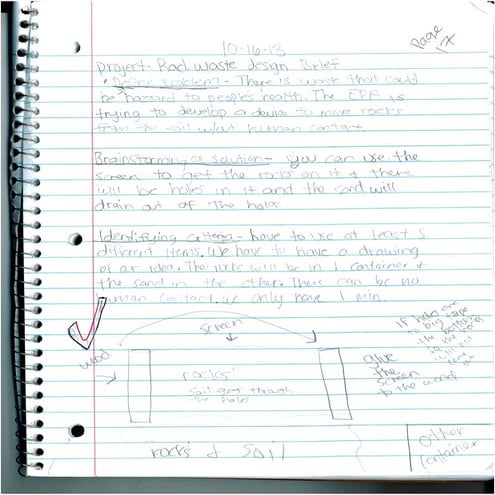 10-16-13
Page 17
Project- Rad. waste design Brief
• Define problem - There is waste that could
be hazard to peoples health. The EPA is
trying to develop a device to move rocks
from the soil w/out human contact.
Brainstorming solution- you can use the
screen to get the rocks on it & there
will be holes in it and the sand will
drain out of the holes.
Identifying criteria- have to use at least 5
different items. We have to have a drawing
of an idea. The rocks will be in 1 container &
the sand in the other. There can be no
human contact. we only have 1 min.
screen
wood
rocks
Soil goes through
the holes
If holes are
to big tape
the
so the
will not
glue
the
screen
to the wood
rocks & soil
other
container